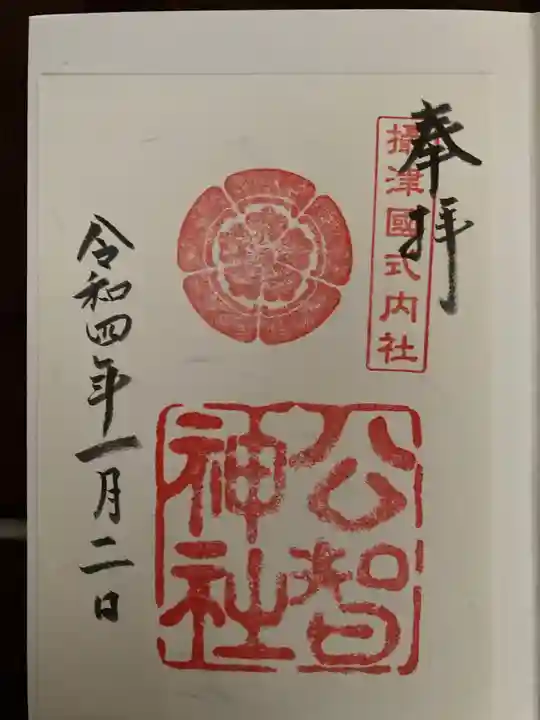 奉拝
攝津國式内社
公智
神社
令和四年一月二日